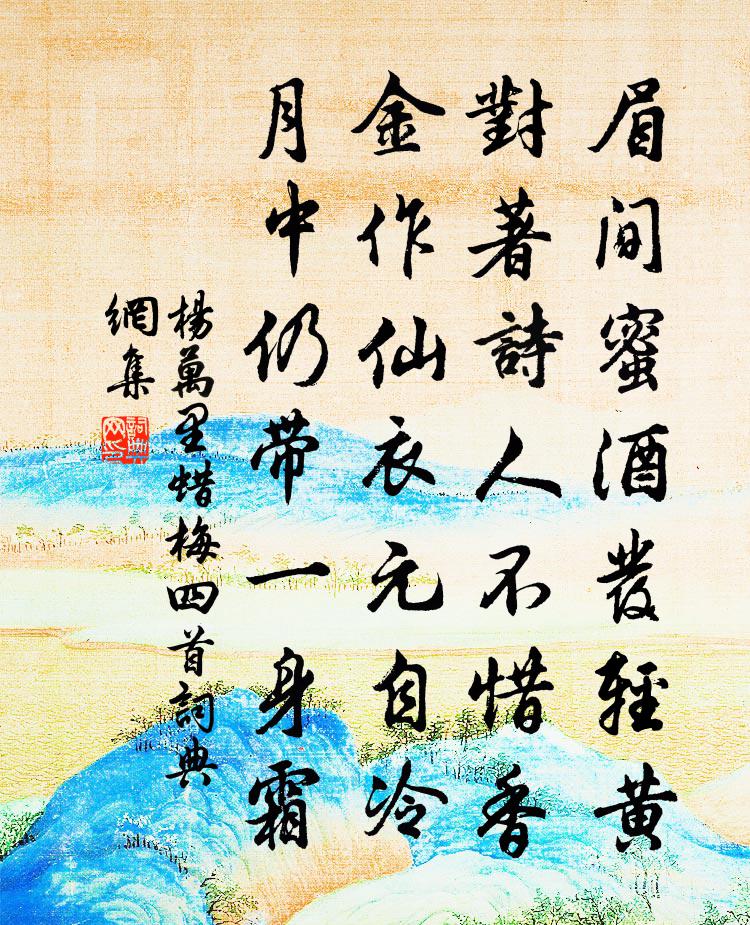 眉間蜜酒發輕黃
對著詩人不惜香
金作仙衣元自冷
月中仍帶一身霜
楊萬里蜡梅四首詞典
網集
詞典
网